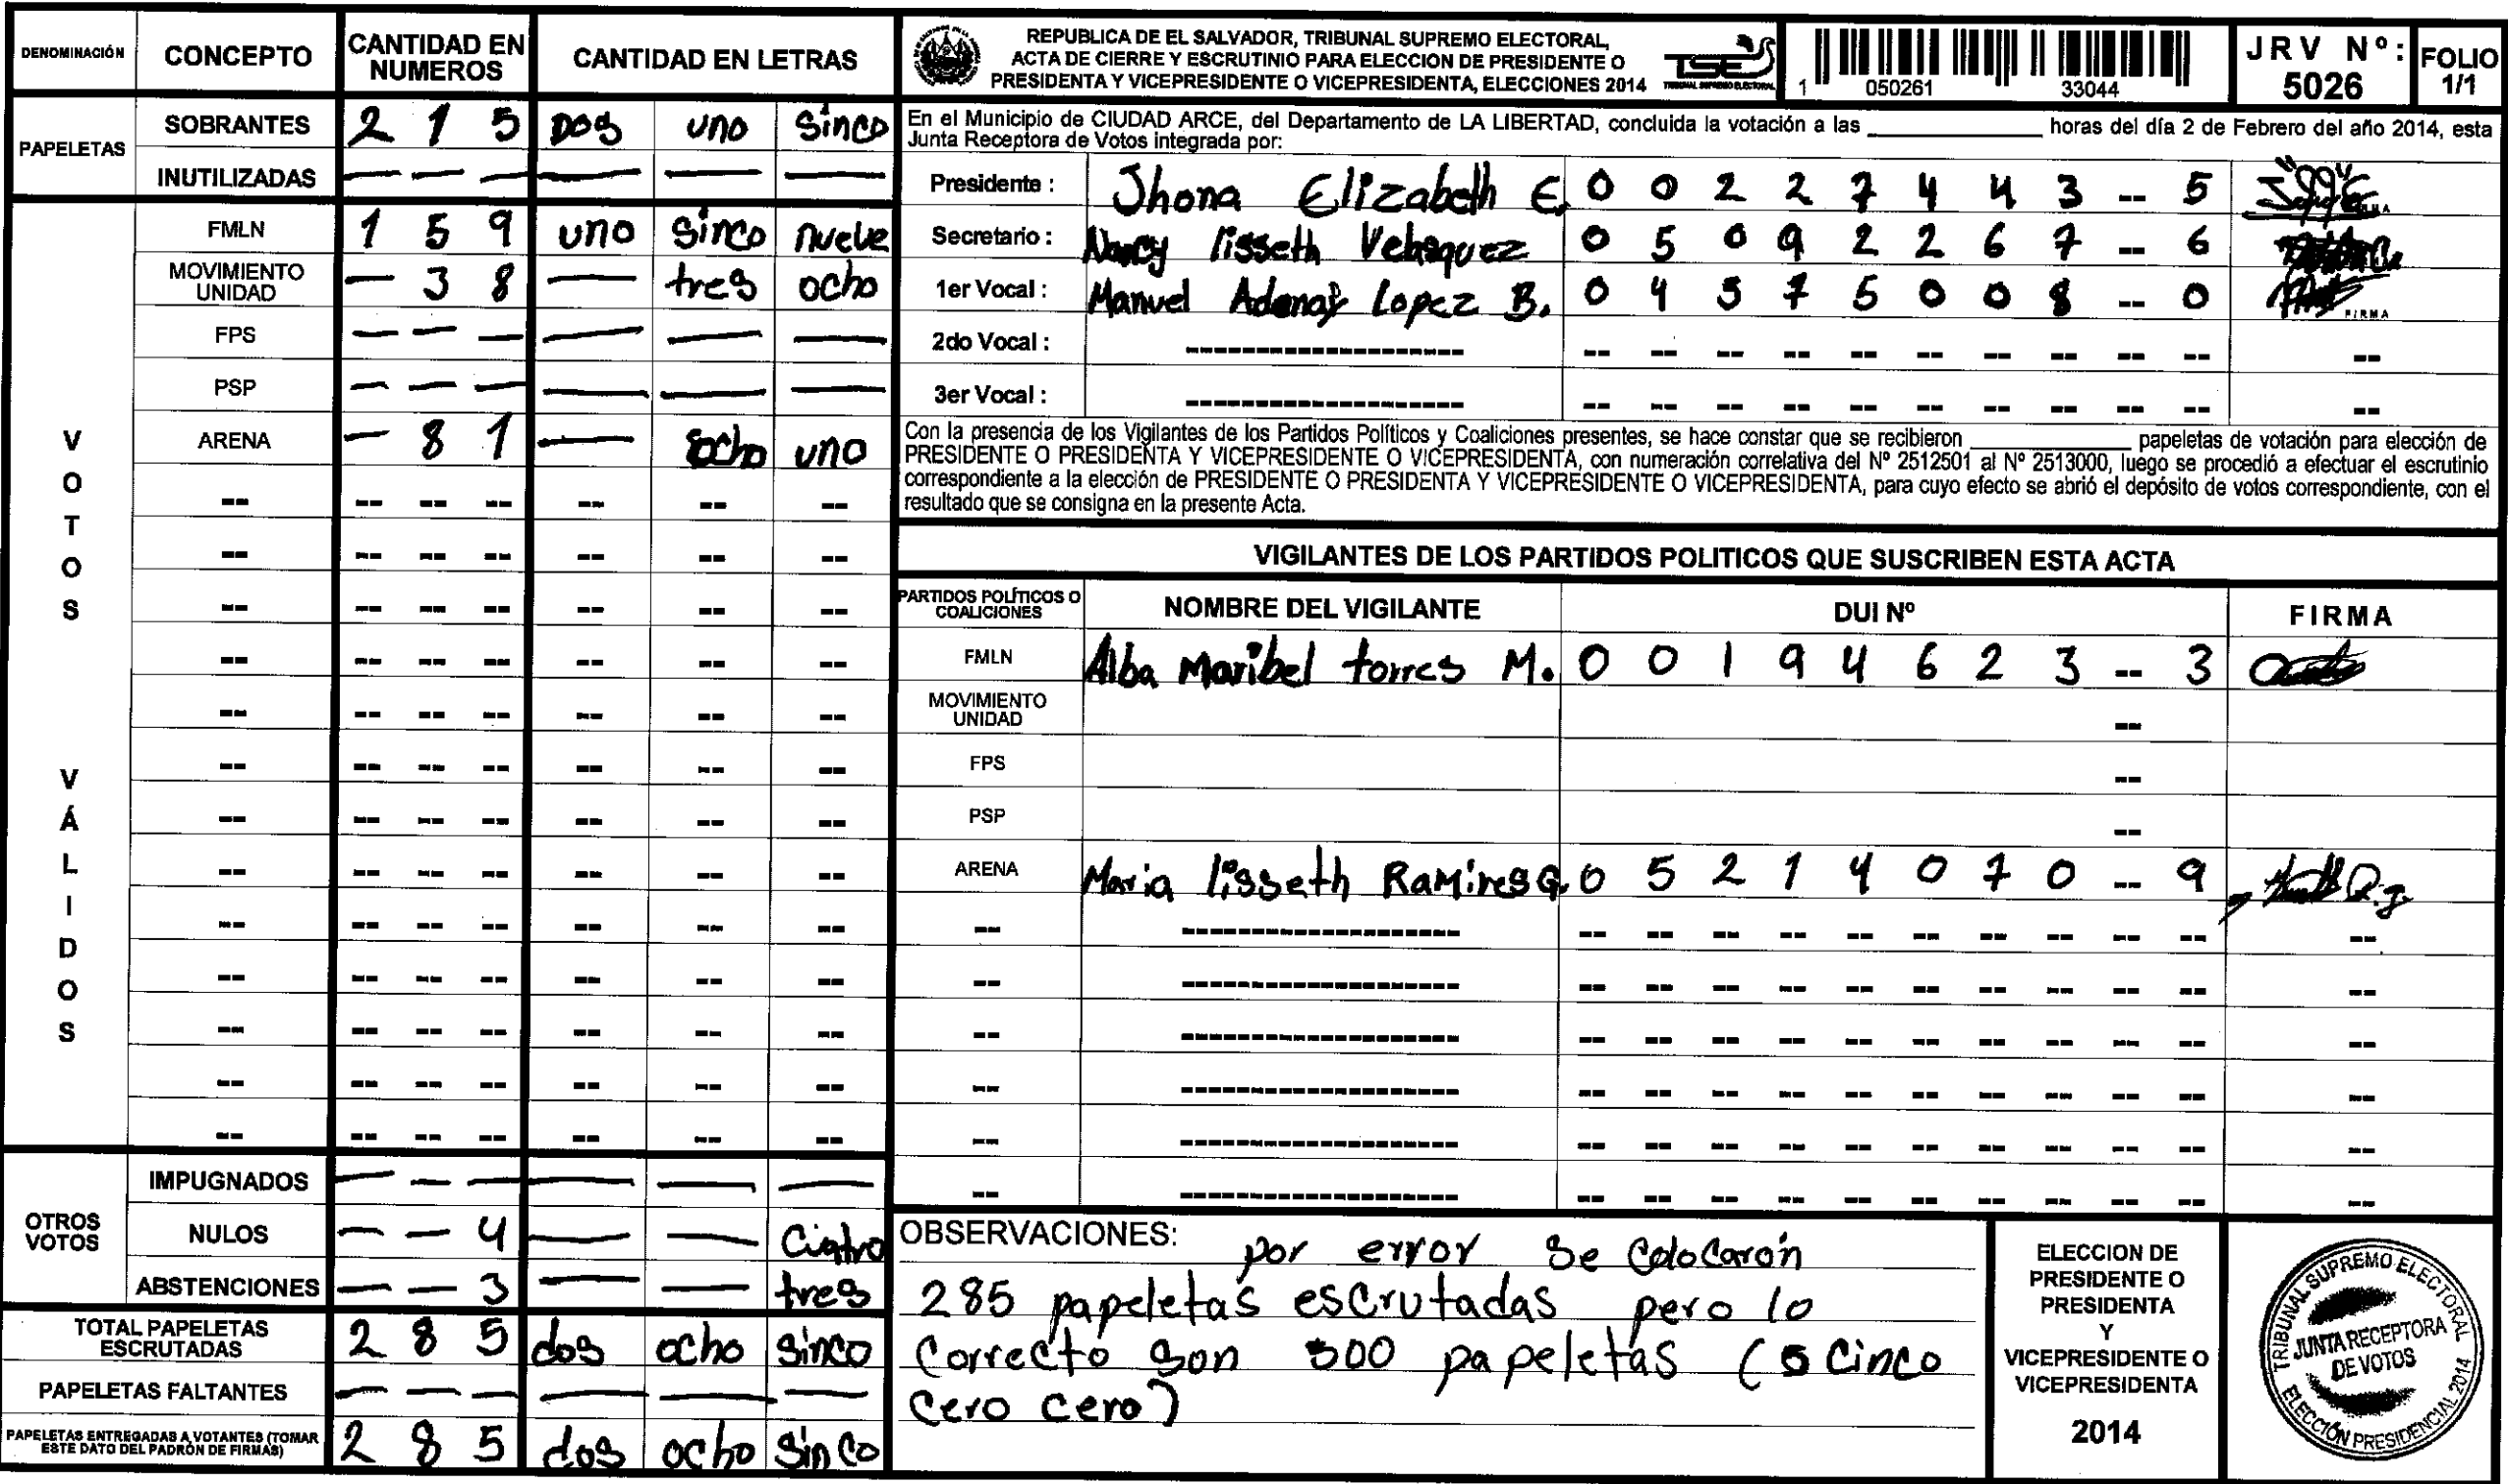 DENOMINACIÓN CONCEPTO CANTIDAD EN NUMEROS CANTIDAD EN LETRAS
PAPELETAS
SOBRANTES 2 1 5 DOS uno Sinco
INUTILIZADAS — — — — — —
VOTOS VÁLIDOS
FMLN 1 5 9 uno sinco nueve
MOVIMIENTO UNIDAD — 3 8 — tres ocho
FPS — — — — — —
PSP — — — — — —
ARENA — 8 1 — ocho uno
OTROS VOTOS
IMPUGNADOS — — — — — —
NULOS — — 4 — — Cuatro
ABSTENCIONES — — 3 — — tres
TOTAL PAPELETAS ESCRUTADAS 2 8 5 dos ocho sinco
PAPELETAS FALTANTES — — — — — —
PAPELETAS ENTREGADAS A VOTANTES (TOMAR ESTE DATO DEL PADRÓN DE FIRMAS) 2 8 5 dos ocho Sinco
REPUBLICA DE EL SALVADOR, TRIBUNAL SUPREMO ELECTORAL,
ACTA DE CIERRE Y ESCRUTINIO PARA ELECCION DE PRESIDENTE O
PRESIDENTA Y VICEPRESIDENTE O VICEPRESIDENTA, ELECCIONES 2014
TSE
TRIBUNAL SUPREMO ELECTORAL
1 050261 33044
JRV Nº: 5026
FOLIO 1/1
En el Municipio de CIUDAD ARCE, del Departamento de LA LIBERTAD, concluida la votación a las ____ horas del día 2 de Febrero del año 2014, esta
Junta Receptora de Votos integrada por:
Presidente : Jhona Elizabeth E. 0 0 2 2 7 4 4 3 -- 5
Secretario : Nancy lisseth Velasquez 0 5 0 9 2 2 6 7 -- 6
1er Vocal : Manuel Adonay Lopez B. 0 4 3 7 5 0 0 8 -- 0
FIRMA
2do Vocal :
3er Vocal :
Con la presencia de los Vigilantes de los Partidos Políticos y Coaliciones presentes, se hace constar que se recibieron ____ papeletas de votación para elección de
PRESIDENTE O PRESIDENTA Y VICEPRESIDENTE O VICEPRESIDENTA, con numeración correlativa del Nº 2512501 al Nº 2513000, luego se procedió a efectuar el escrutinio
correspondiente a la elección de PRESIDENTE O PRESIDENTA Y VICEPRESIDENTE O VICEPRESIDENTA, para cuyo efecto se abrió el depósito de votos correspondiente, con el
resultado que se consigna en la presente Acta.
VIGILANTES DE LOS PARTIDOS POLITICOS QUE SUSCRIBEN ESTA ACTA
PARTIDOS POLÍTICOS O COALICIONES NOMBRE DEL VIGILANTE DUI Nº FIRMA
FMLN Alba Maribel torres M. 0 0 1 9 4 6 2 3 -- 3
MOVIMIENTO UNIDAD --
FPS --
PSP --
ARENA Maria lisseth Ramires G. 0 5 2 1 4 0 7 0 -- 9
OBSERVACIONES: por error se Colocarón
285 papeletas escrutadas pero lo
Correcto son 500 papeletas (5 Cinco
Cero cero)
ELECCION DE
PRESIDENTE O
PRESIDENTA
Y
VICEPRESIDENTE O
VICEPRESIDENTA
2014
TRIBUNAL SUPREMO ELECTORAL
JUNTA RECEPTORA
DE VOTOS
ELECCIÓN PRESIDENCIAL 2014